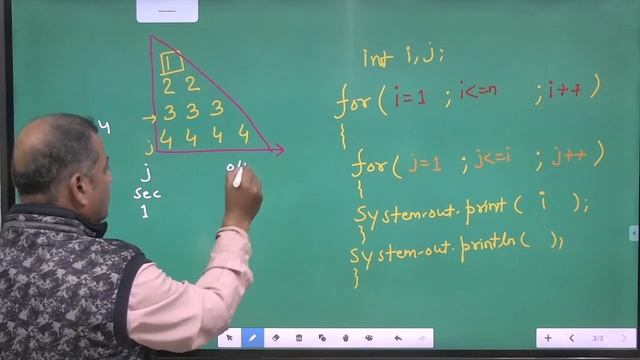 1
2 2
3 3 3
4 4 4 4
4
j
j
sec
1
int i,j;
for( i=1 ; i<=n ; i++ )
{
for( j=1 ; j<=i ; j++ )
{
System.out.print( i );
}
System.out.println( );
}
3/3